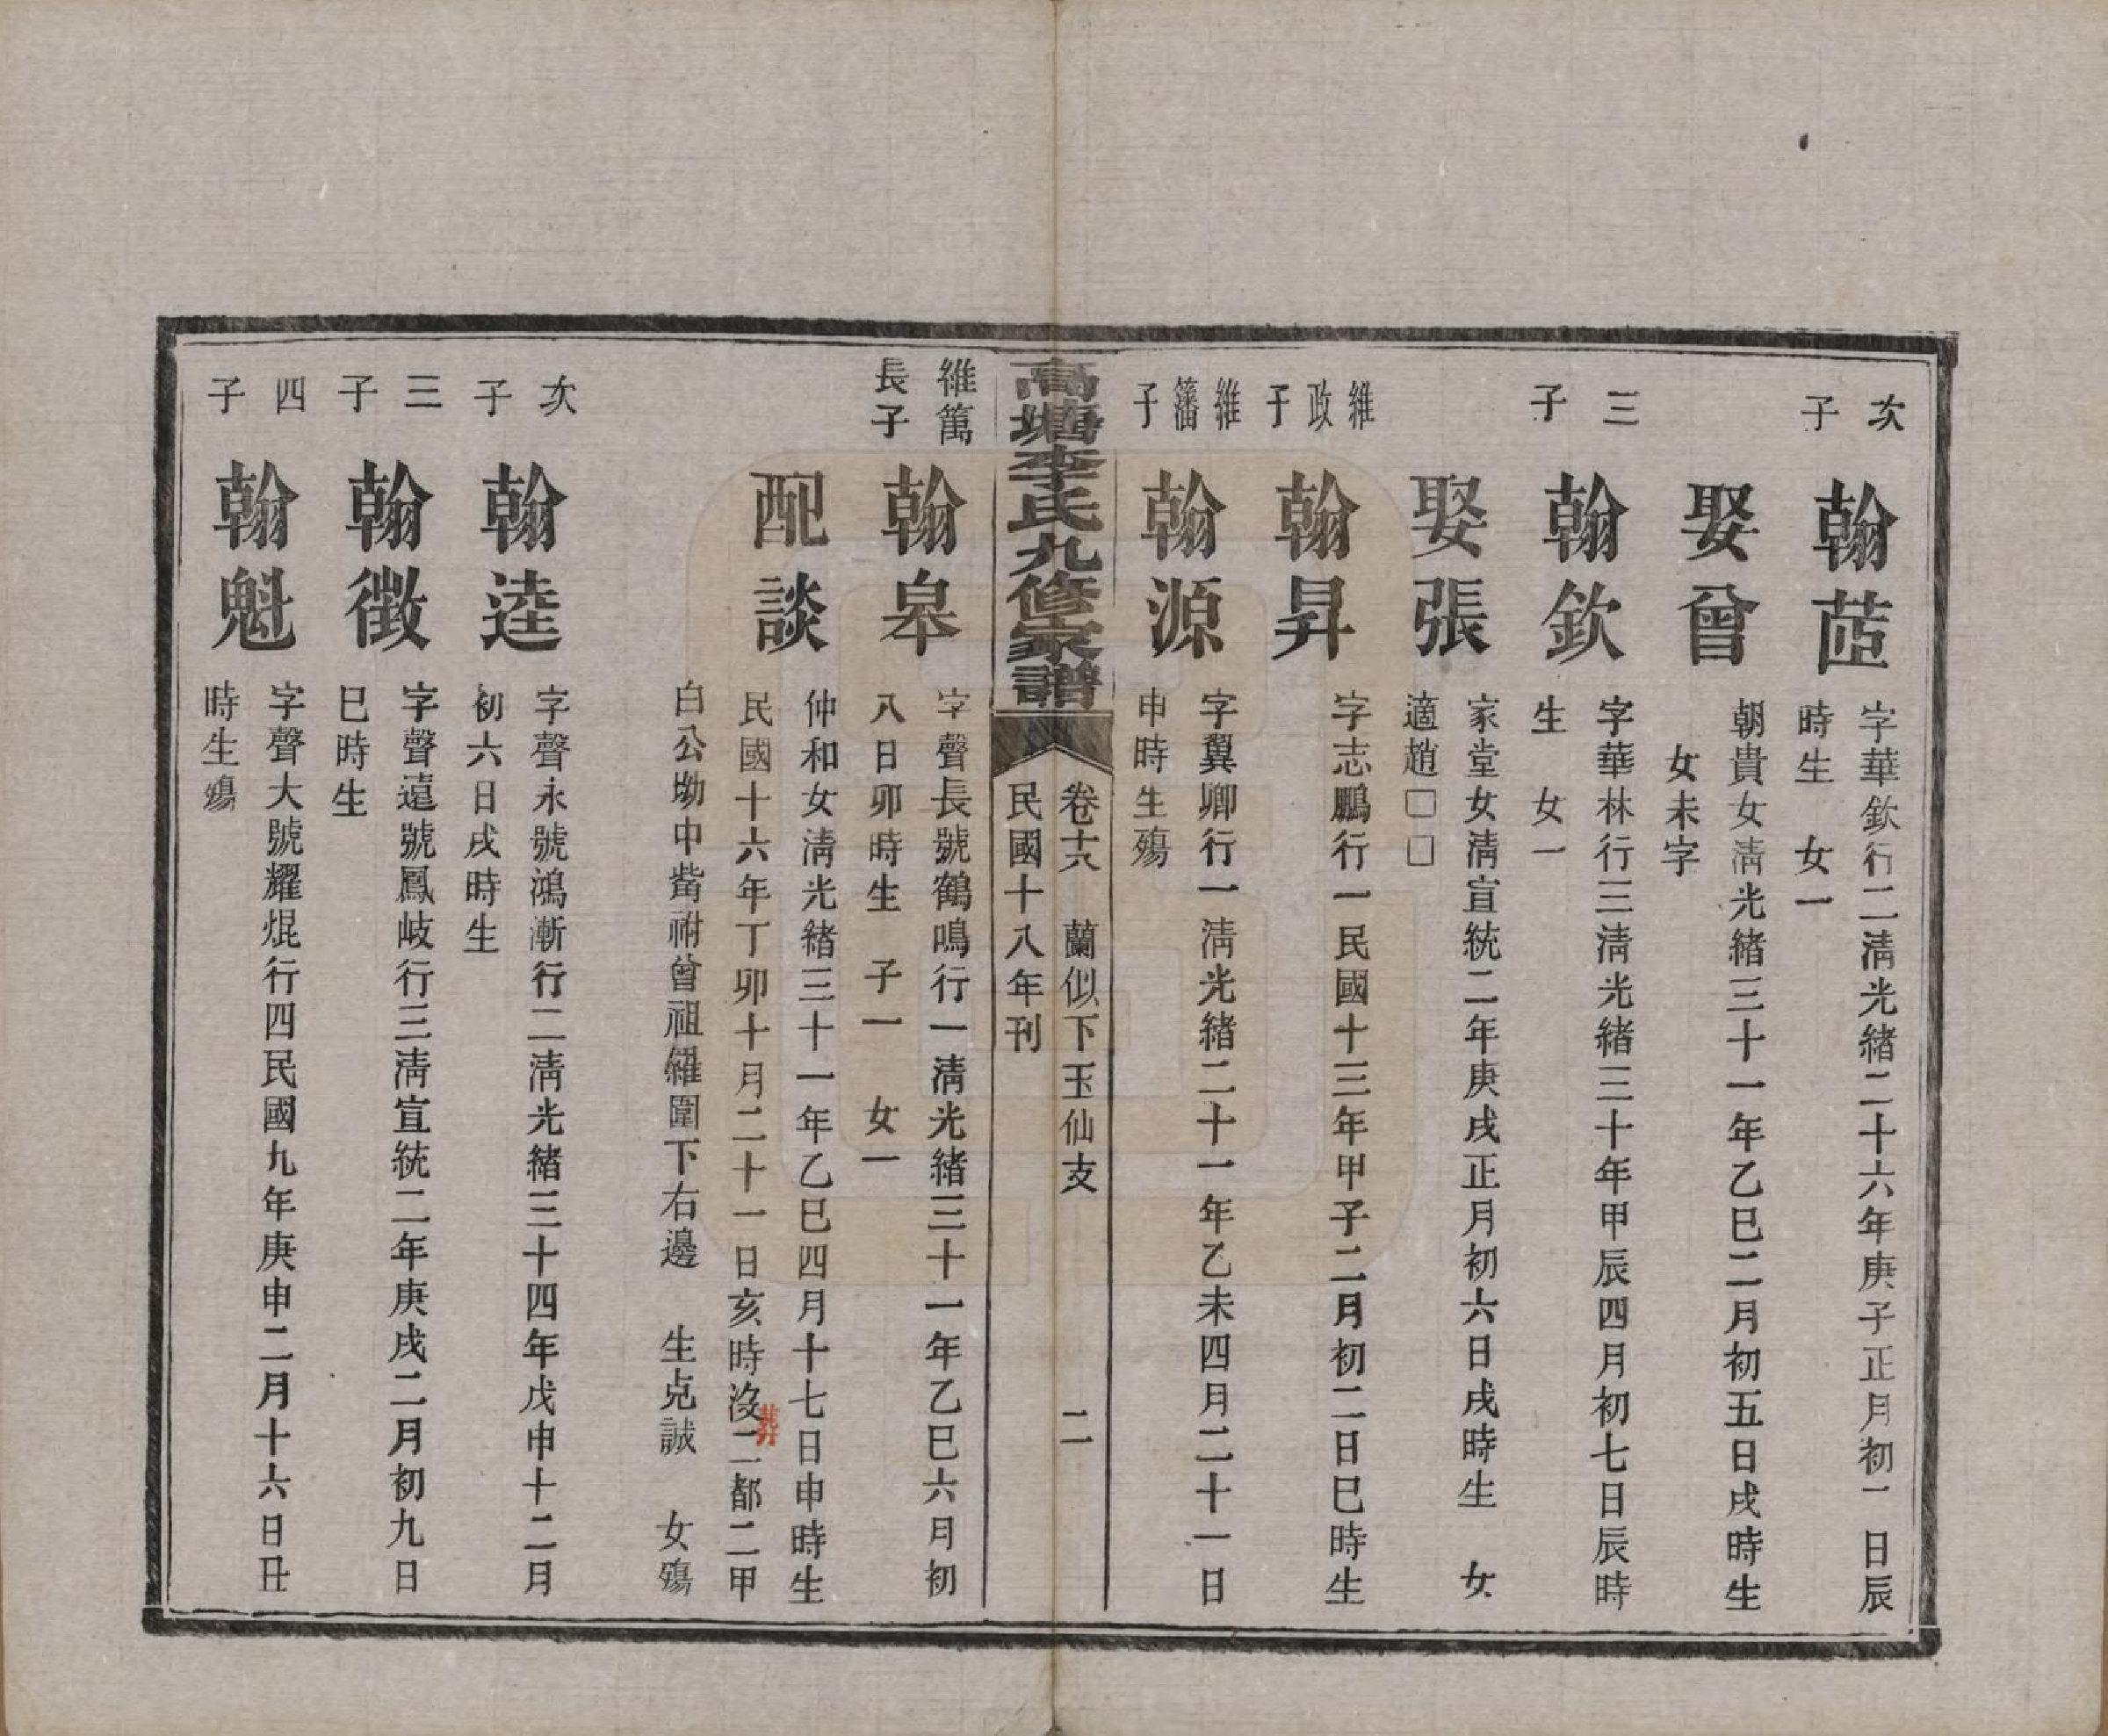 次子
翰茝
字華欽行二淸光緒二十六年庚子正月初一日辰
時生　女一
娶曾
朝貴女淸光緒三十一年乙巳二月初五日戌時生
女未字
三子
翰欽
字華林行三淸光緒三十年甲辰四月初七日辰時
生　女一
娶張
家堂女淸宣統二年庚戌正月初六日戌時生　女
適趙□□
維政子
翰昇
字志鵬行一民國十三年甲子二月初二日巳時生
維藩子
翰源
字翼卿行一淸光緒二十一年乙未四月二十一日
申時生殤
高塘李氏九修家譜
卷十六　蘭似下玉仙支　二
民國十八年刊
維萬長子
翰皋
字聲長號鶴鳴行一淸光緒三十一年乙巳六月初
八日卯時生　子一　女一
配談
仲和女淸光緒三十一年乙巳四月十七日申時生
民國十六年丁卯十月二十一日亥時沒葬二都二甲
白公坳中嘴祔曾祖羅圍下右邊　生克誠　女殤
次子
翰逵
字聲永號鴻漸行二淸光緒三十四年戊申十二月
初六日戌時生
三子
翰徵
字聲遠號鳳岐行三淸宣統二年庚戌二月初九日
巳時生
四子
翰魁
字聲大號耀焜行四民國九年庚申二月十六日丑
時生殤